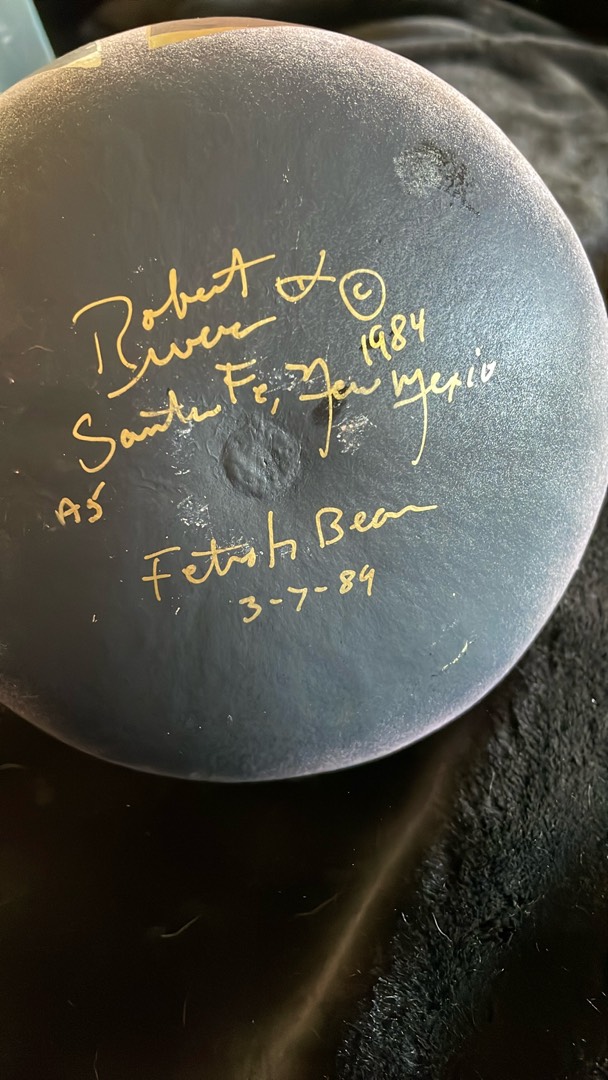 Robert ©
Rivera 1984
Santa Fe, New Mexico
A5
Fetish Bear
3-7-89